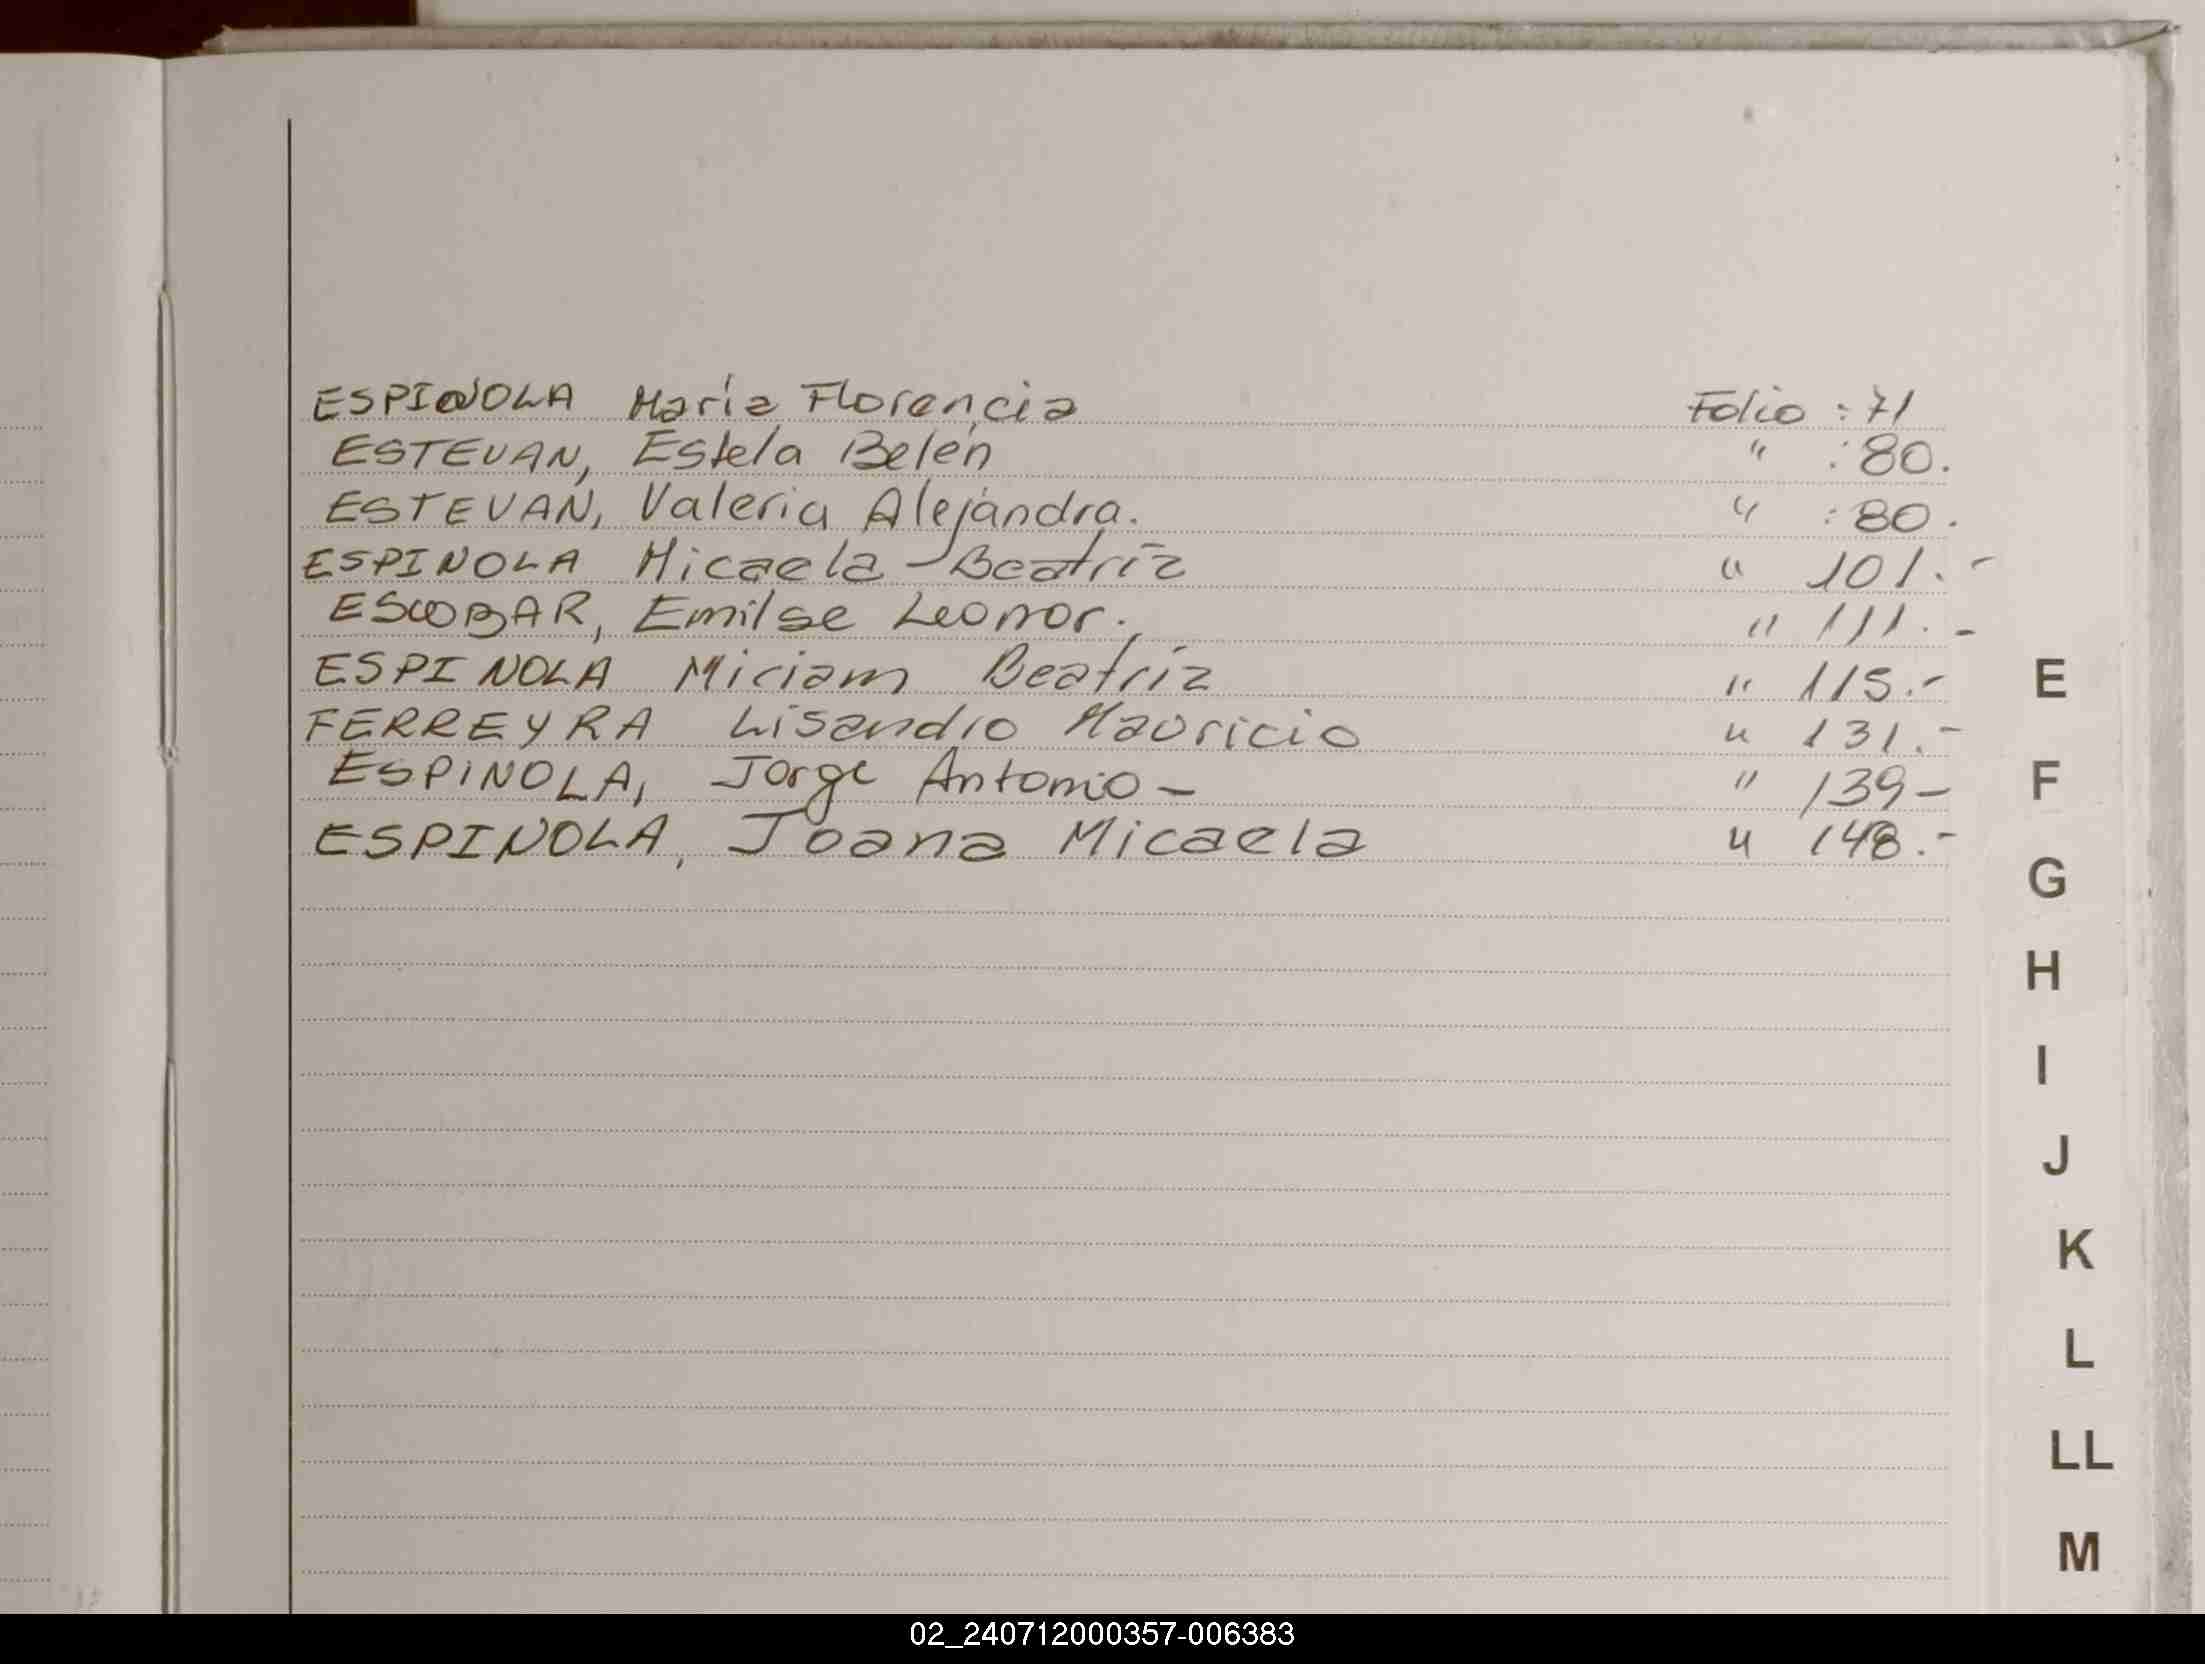 ESPINOLA María Florencia Folio : 71
ESTEVAN, Estela Belén " : 80.
ESTEVAN, Valeria Alejandra. " : 80.
ESPINOLA Micaela Beatríz " 101.-
ESCOBAR, Emilse Leonor. " 111.-
ESPINOLA Miriam Beatríz " 115.-
FERREYRA Lisandro Mauricio " 131.-
ESPINOLA, Jorge Antonio - " 139-
ESPINOLA, Joana Micaela " 148.-
E
F
G
H
I
J
K
L
LL
M
02_240712000357-006383